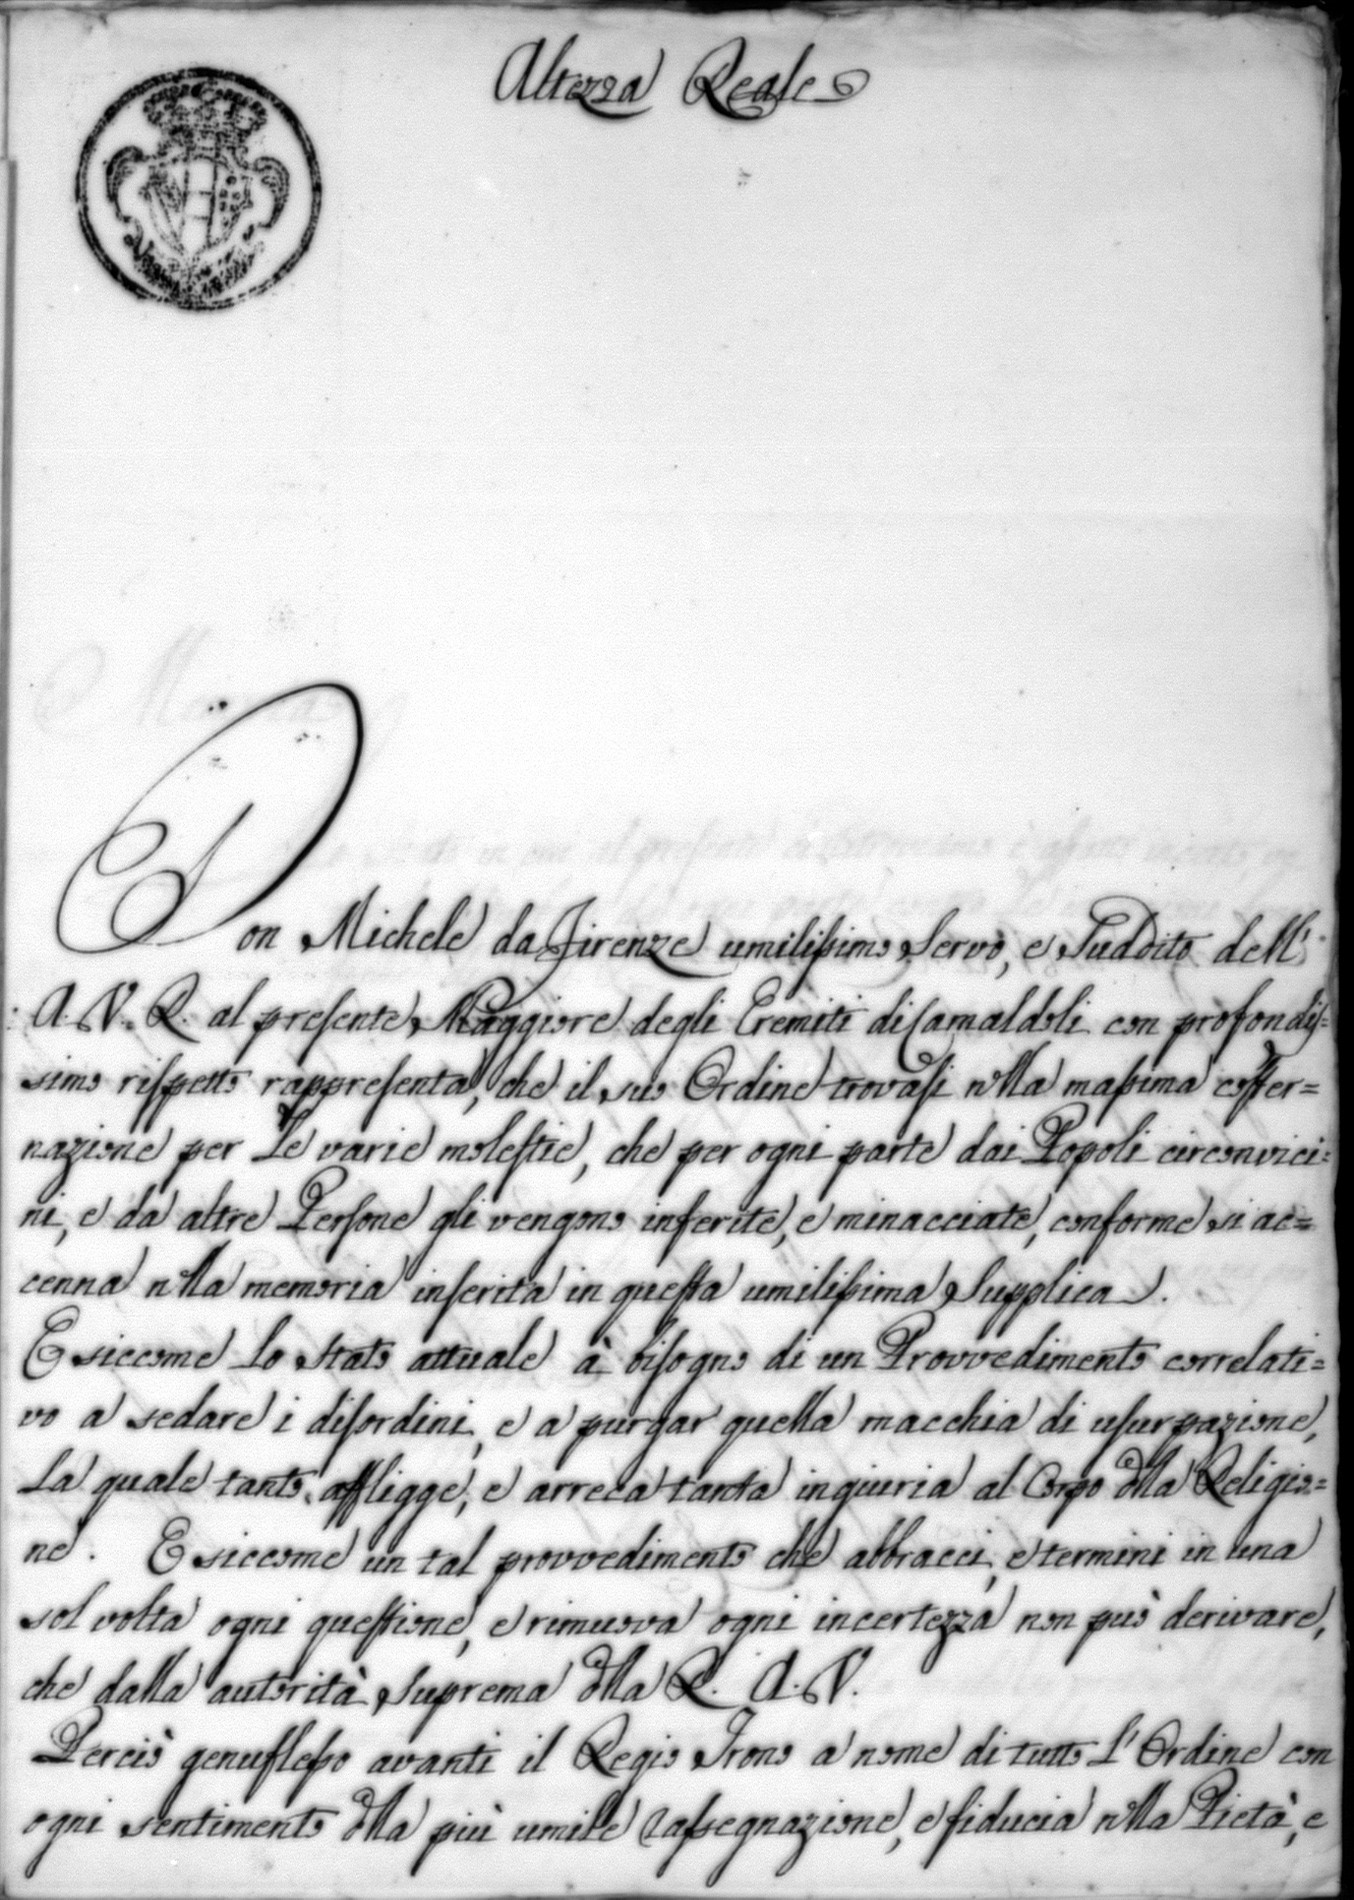 Altezza Reale
Don Michele da Firenze umilissimo Servo, e Suddito dell'
A. V. R. al presente Maggiore degli Eremiti di Camaldoli con profondis=
simo rispetto rappresenta, che il suo Ordine trovasi nella massima coster=
nazione per le varie molestie, che per ogni parte dai Popoli circonvici=
ni, e da altre Persone gli vengono inferite, e minacciate, conforme si ac=
cenna nella memoria inserita in questa umilissima Supplica.
E siccome lo stato attuale à bisogno di un Provvedimento correlati=
vo a sedare i disordini, e a purgar quella macchia di usurpazione,
la quale tanto affligge, e arreca tanta ingiuria al Corpo della Religio=
ne. E siccome un tal provvedimento che abbracci, e termini in una
sol volta ogni questione, e rimuova ogni incertezza non può derivare,
che dalla autorità suprema della R. A. V.
Perciò genuflesso avanti il Regio Trono a nome di tutto l'Ordine con
ogni sentimento della più umile rassegnazione, e fiducia nella Pietà, e